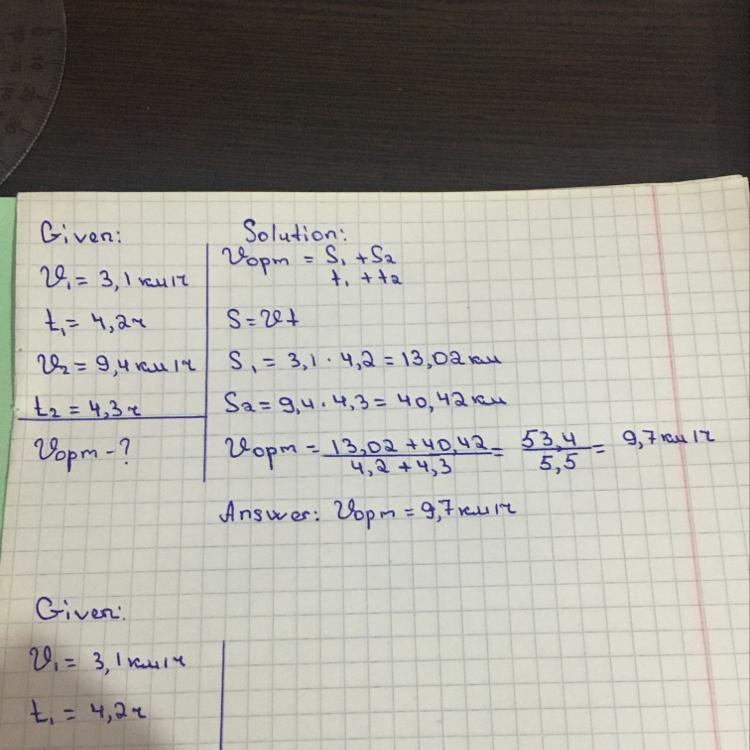 Given:
V₁ = 3,1 км/ч
t₁ = 4,2ч
V₂ = 9,4 км/ч
t₂ = 4,3ч
Vорт - ?
Solution:
Vорт = S₁ + S₂
t₁ + t₂
S = Vt
S₁ = 3,1 · 4,2 = 13,02 км
S₂ = 9,4 · 4,3 = 40,42 км
Vорт = 13,02 + 40,42 / 4,2 + 4,3 = 53,4 / 5,5 = 9,7 км/ч
Answer: Vорт = 9,7 км/ч
Given:
V₁ = 3,1 км/ч
t₁ = 4,2ч